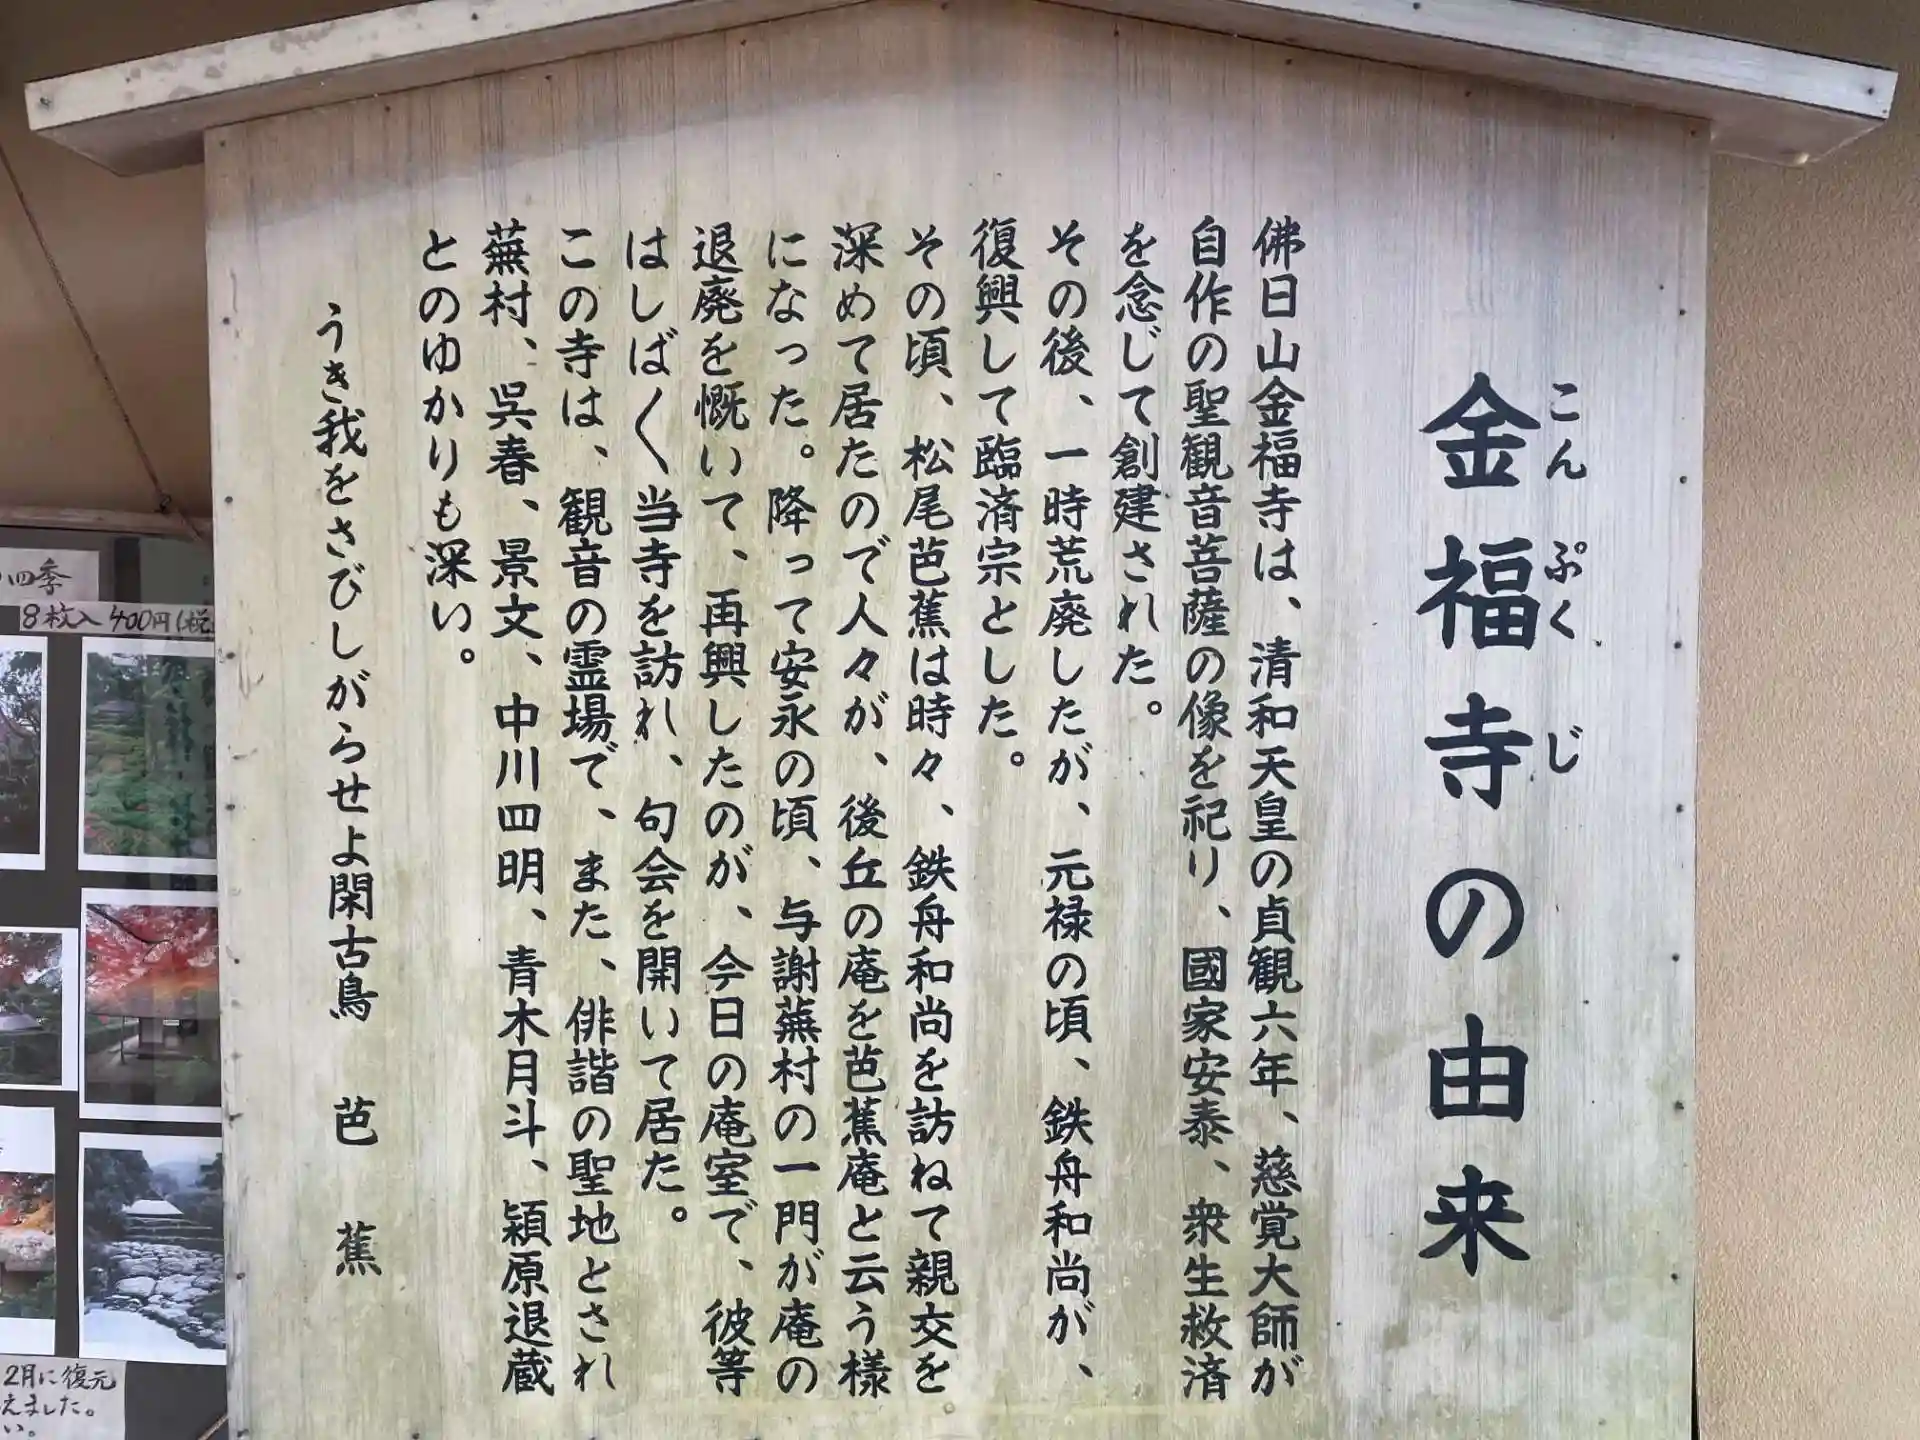 金福寺の由来
こんぷくじ
佛日山金福寺は、清和天皇の貞観六年、慈覚大師が
自作の聖観音菩薩の像を祀り、國家安泰、衆生救済
を念じて創建された。
その後、一時荒廃したが、元禄の頃、鉄舟和尚が、
復興して臨済宗とした。
その頃、松尾芭蕉は時々、鉄舟和尚を訪ねて親交を
深めて居たので人々が、後丘の庵を芭蕉庵と云う様
になった。降って安永の頃、与謝蕪村の一門が庵の
退廃を慨いて、再興したのが、今日の庵室で、彼等
はしば〱当寺を訪れ、句会を開いて居た。
この寺は、観音の霊場で、また、俳諧の聖地とされ
蕪村、呉春、景文、中川四明、青木月斗、潁原退蔵
とのゆかりも深い。
うき我をさびしがらせよ閑古鳥　芭　蕉
四季
8枚入 400円(税
2月に復元
えました。
い。